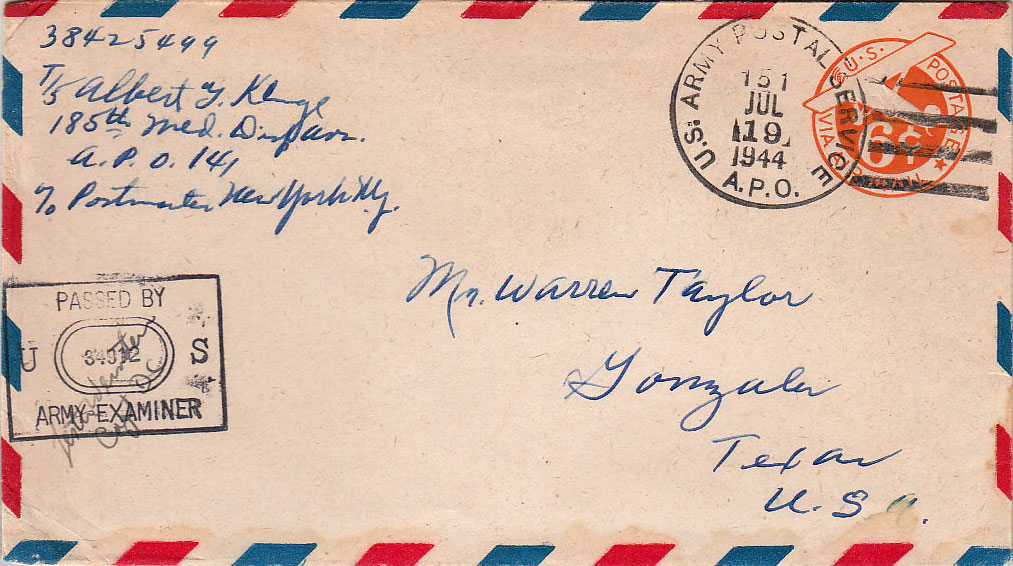 38425499
T/5 Albert Y. Kluge
185th Med. Disp avn.
A.P.O. 141
c/o Postmaster New York N.y.
U.S. ARMY POSTAL SERVICE
151
JUL
19
1944
A.P.O.
U.S. POSTAGE
VIA AIR MAIL
6¢
Mr. Warren Taylor
Gonzales
Texas
U.S.A.
PASSED BY
U S
ARMY EXAMINER